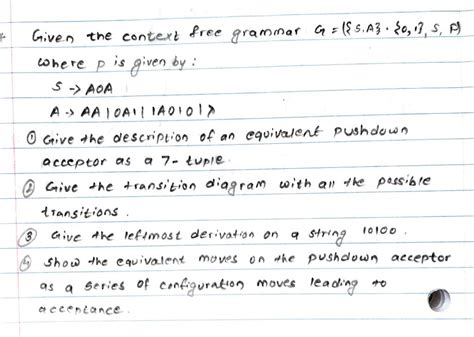 Given the context free grammar G = ({S.A} . {0,1}, S, P)
where p is given by :
S → A0A
A → AA | 0A1 | 1A0 | 0 | λ
① Give the description of an equivalent pushdown
acceptor as a 7- tuple.
② Give the transition diagram with all the possible
transitions .
③ Give the leftmost derivation on a string 10100 .
④ show the equivalent moves on the pushdown acceptor
as a series of configuration moves leading to
acceptance .